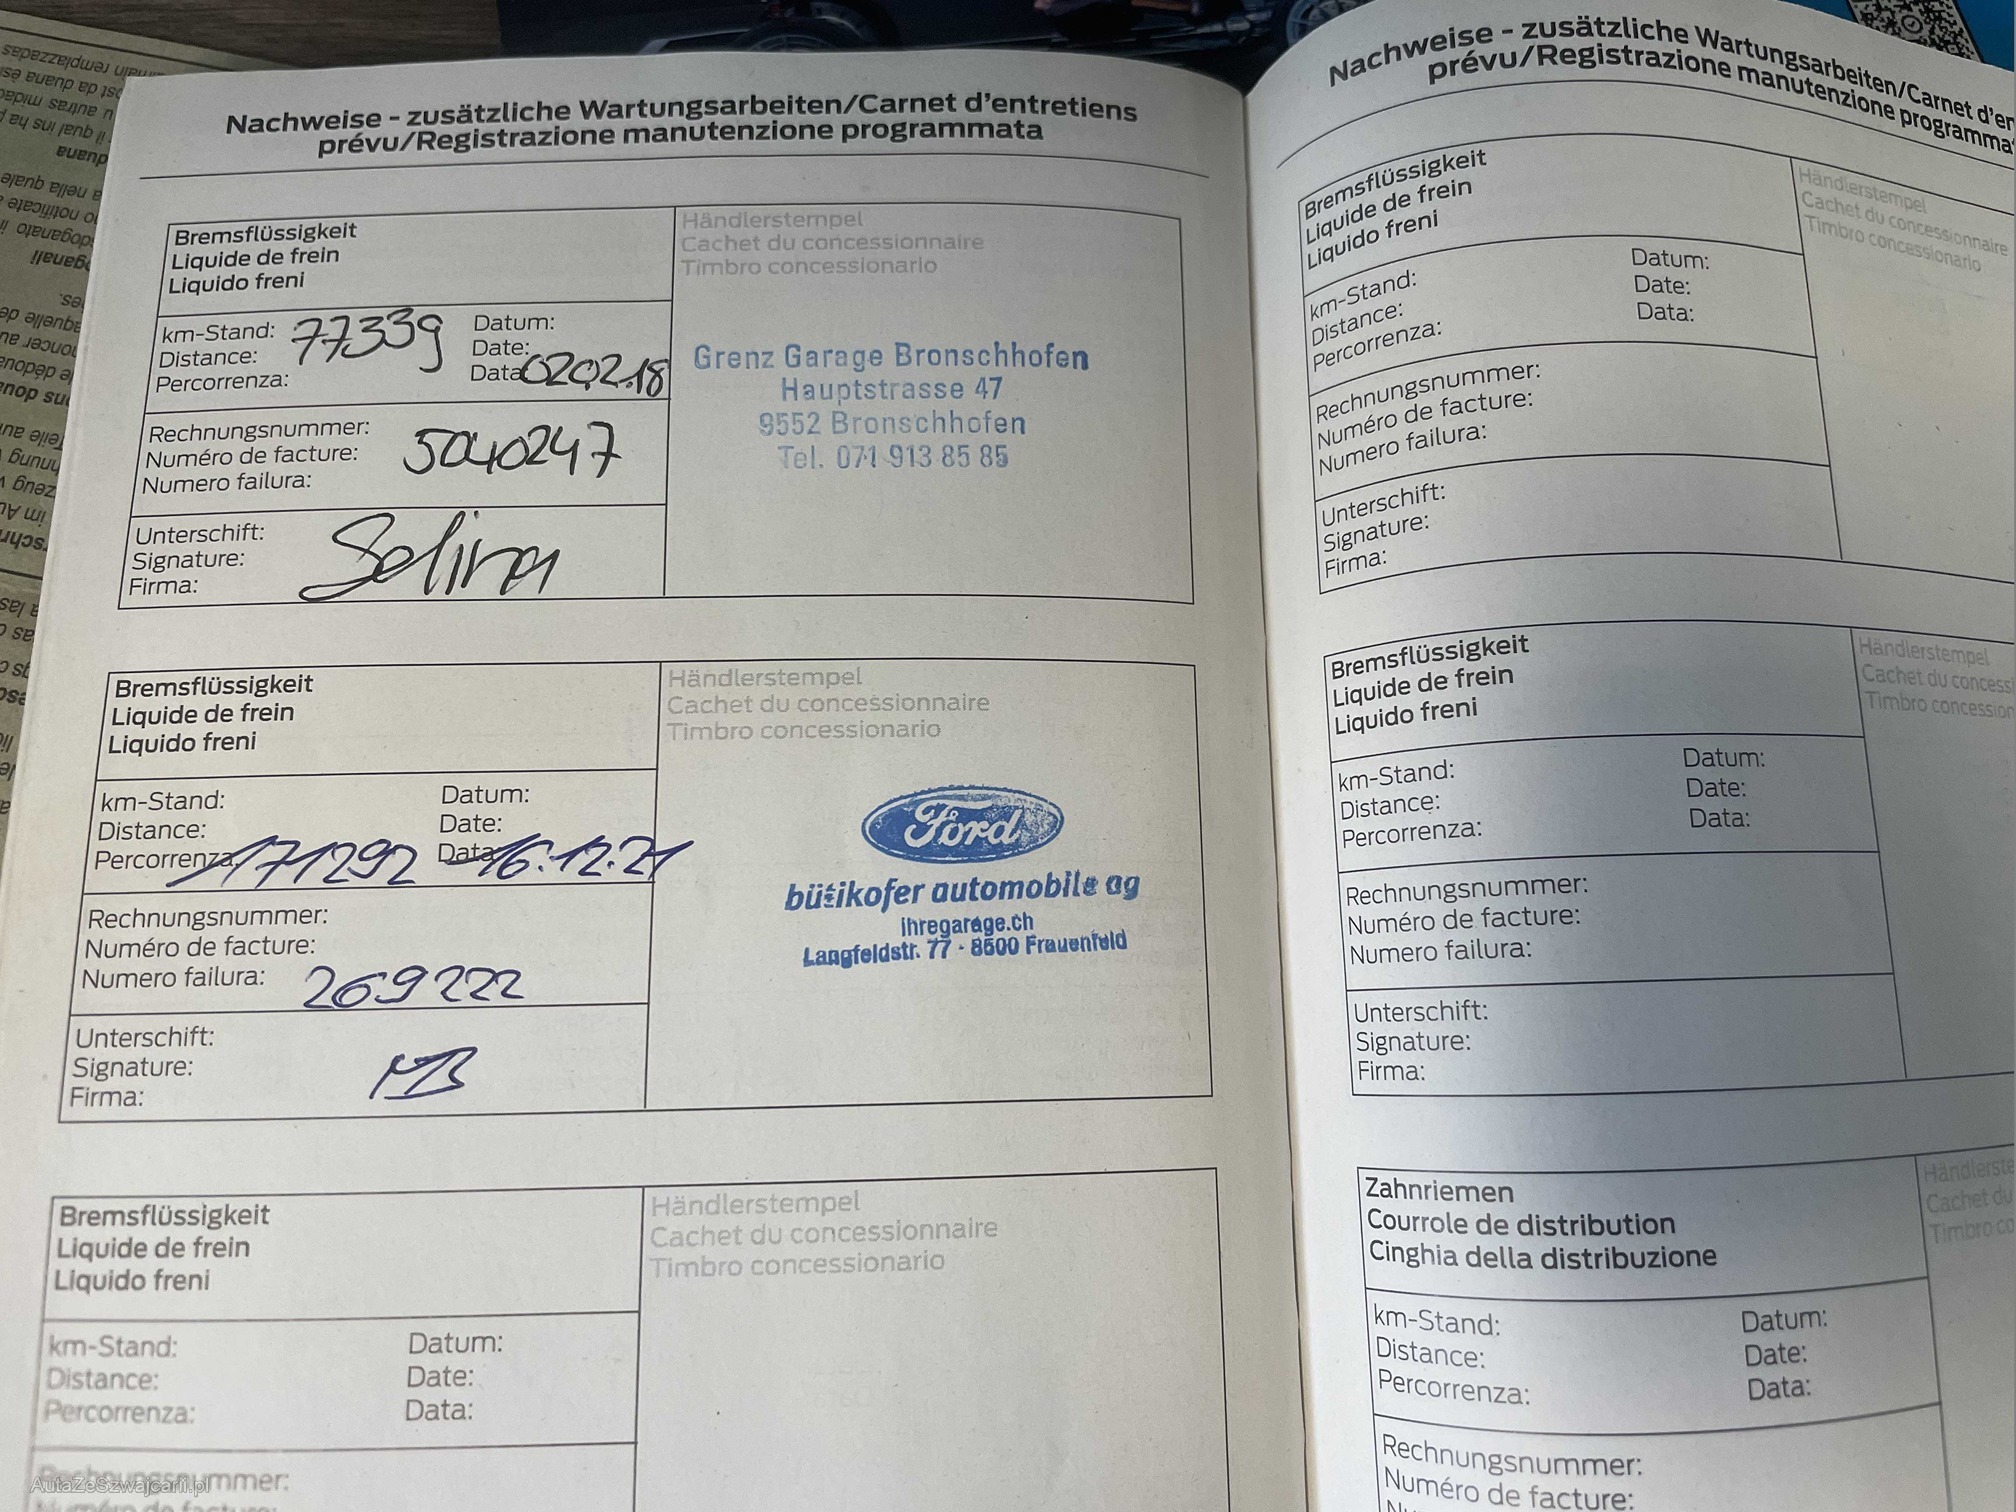 Nachweise - zusätzliche Wartungsarbeiten/Carnet d'entretiens
prévu/Registrazione manutenzione programmata
Bremsflüssigkeit
Liquide de frein
Liquido freni
Händlerstempel
Cachet du concessionnaire
Timbro concessionario
km-Stand: 77339
Distance:
Percorrenza:
Datum:
Date:
Data 020218
Rechnungsnummer:
Numéro de facture: 5040247
Numero failura:
Unterschift:
Signature: Selina
Firma:
Grenz Garage Bronschhofen
Hauptstrasse 47
9552 Bronschhofen
Tel. 071 913 85 85
Bremsflüssigkeit
Liquide de frein
Liquido freni
Händlerstempel
Cachet du concessionnaire
Timbro concessionario
km-Stand:
Distance:
Percorrenza 171292
Datum:
Date:
Data 16.12.21
Rechnungsnummer:
Numéro de facture:
Numero failura: 269222
Unterschift:
Signature: MB
Firma:
Ford
bütikofer automobile ag
ihregarage.ch
Langfeldstr. 77 - 8500 Frauenfeld
Bremsflüssigkeit
Liquide de frein
Liquido freni
Händlerstempel
Cachet du concessionnaire
Timbro concessionario
km-Stand:
Distance:
Percorrenza:
Datum:
Date:
Data:
Rechnungsnummer:
Numéro de facture:
AutaZeSzwajcarii.pl
Nachweise - zusätzliche Wartungsarbeiten/Carnet d'en
prévu/Registrazione manutenzione programma
Bremsflüssigkeit
Liquide de frein
Liquido freni
Händlerstempel
Cachet du concessionnaire
Timbro concessionario
km-Stand:
Distance:
Percorrenza:
Datum:
Date:
Data:
Rechnungsnummer:
Numéro de facture:
Numero failura:
Unterschift:
Signature:
Firma:
Bremsflüssigkeit
Liquide de frein
Liquido freni
Händlerstempel
Cachet du concess
Timbro concession
km-Stand:
Distance:
Percorrenza:
Datum:
Date:
Data:
Rechnungsnummer:
Numéro de facture:
Numero failura:
Unterschift:
Signature:
Firma:
Zahnriemen
Courrole de distribution
Cinghia della distribuzione
Händlerste
Cachet du
Timbro co
km-Stand:
Distance:
Percorrenza:
Datum:
Date:
Data:
Rechnungsnummer:
Numéro de facture: